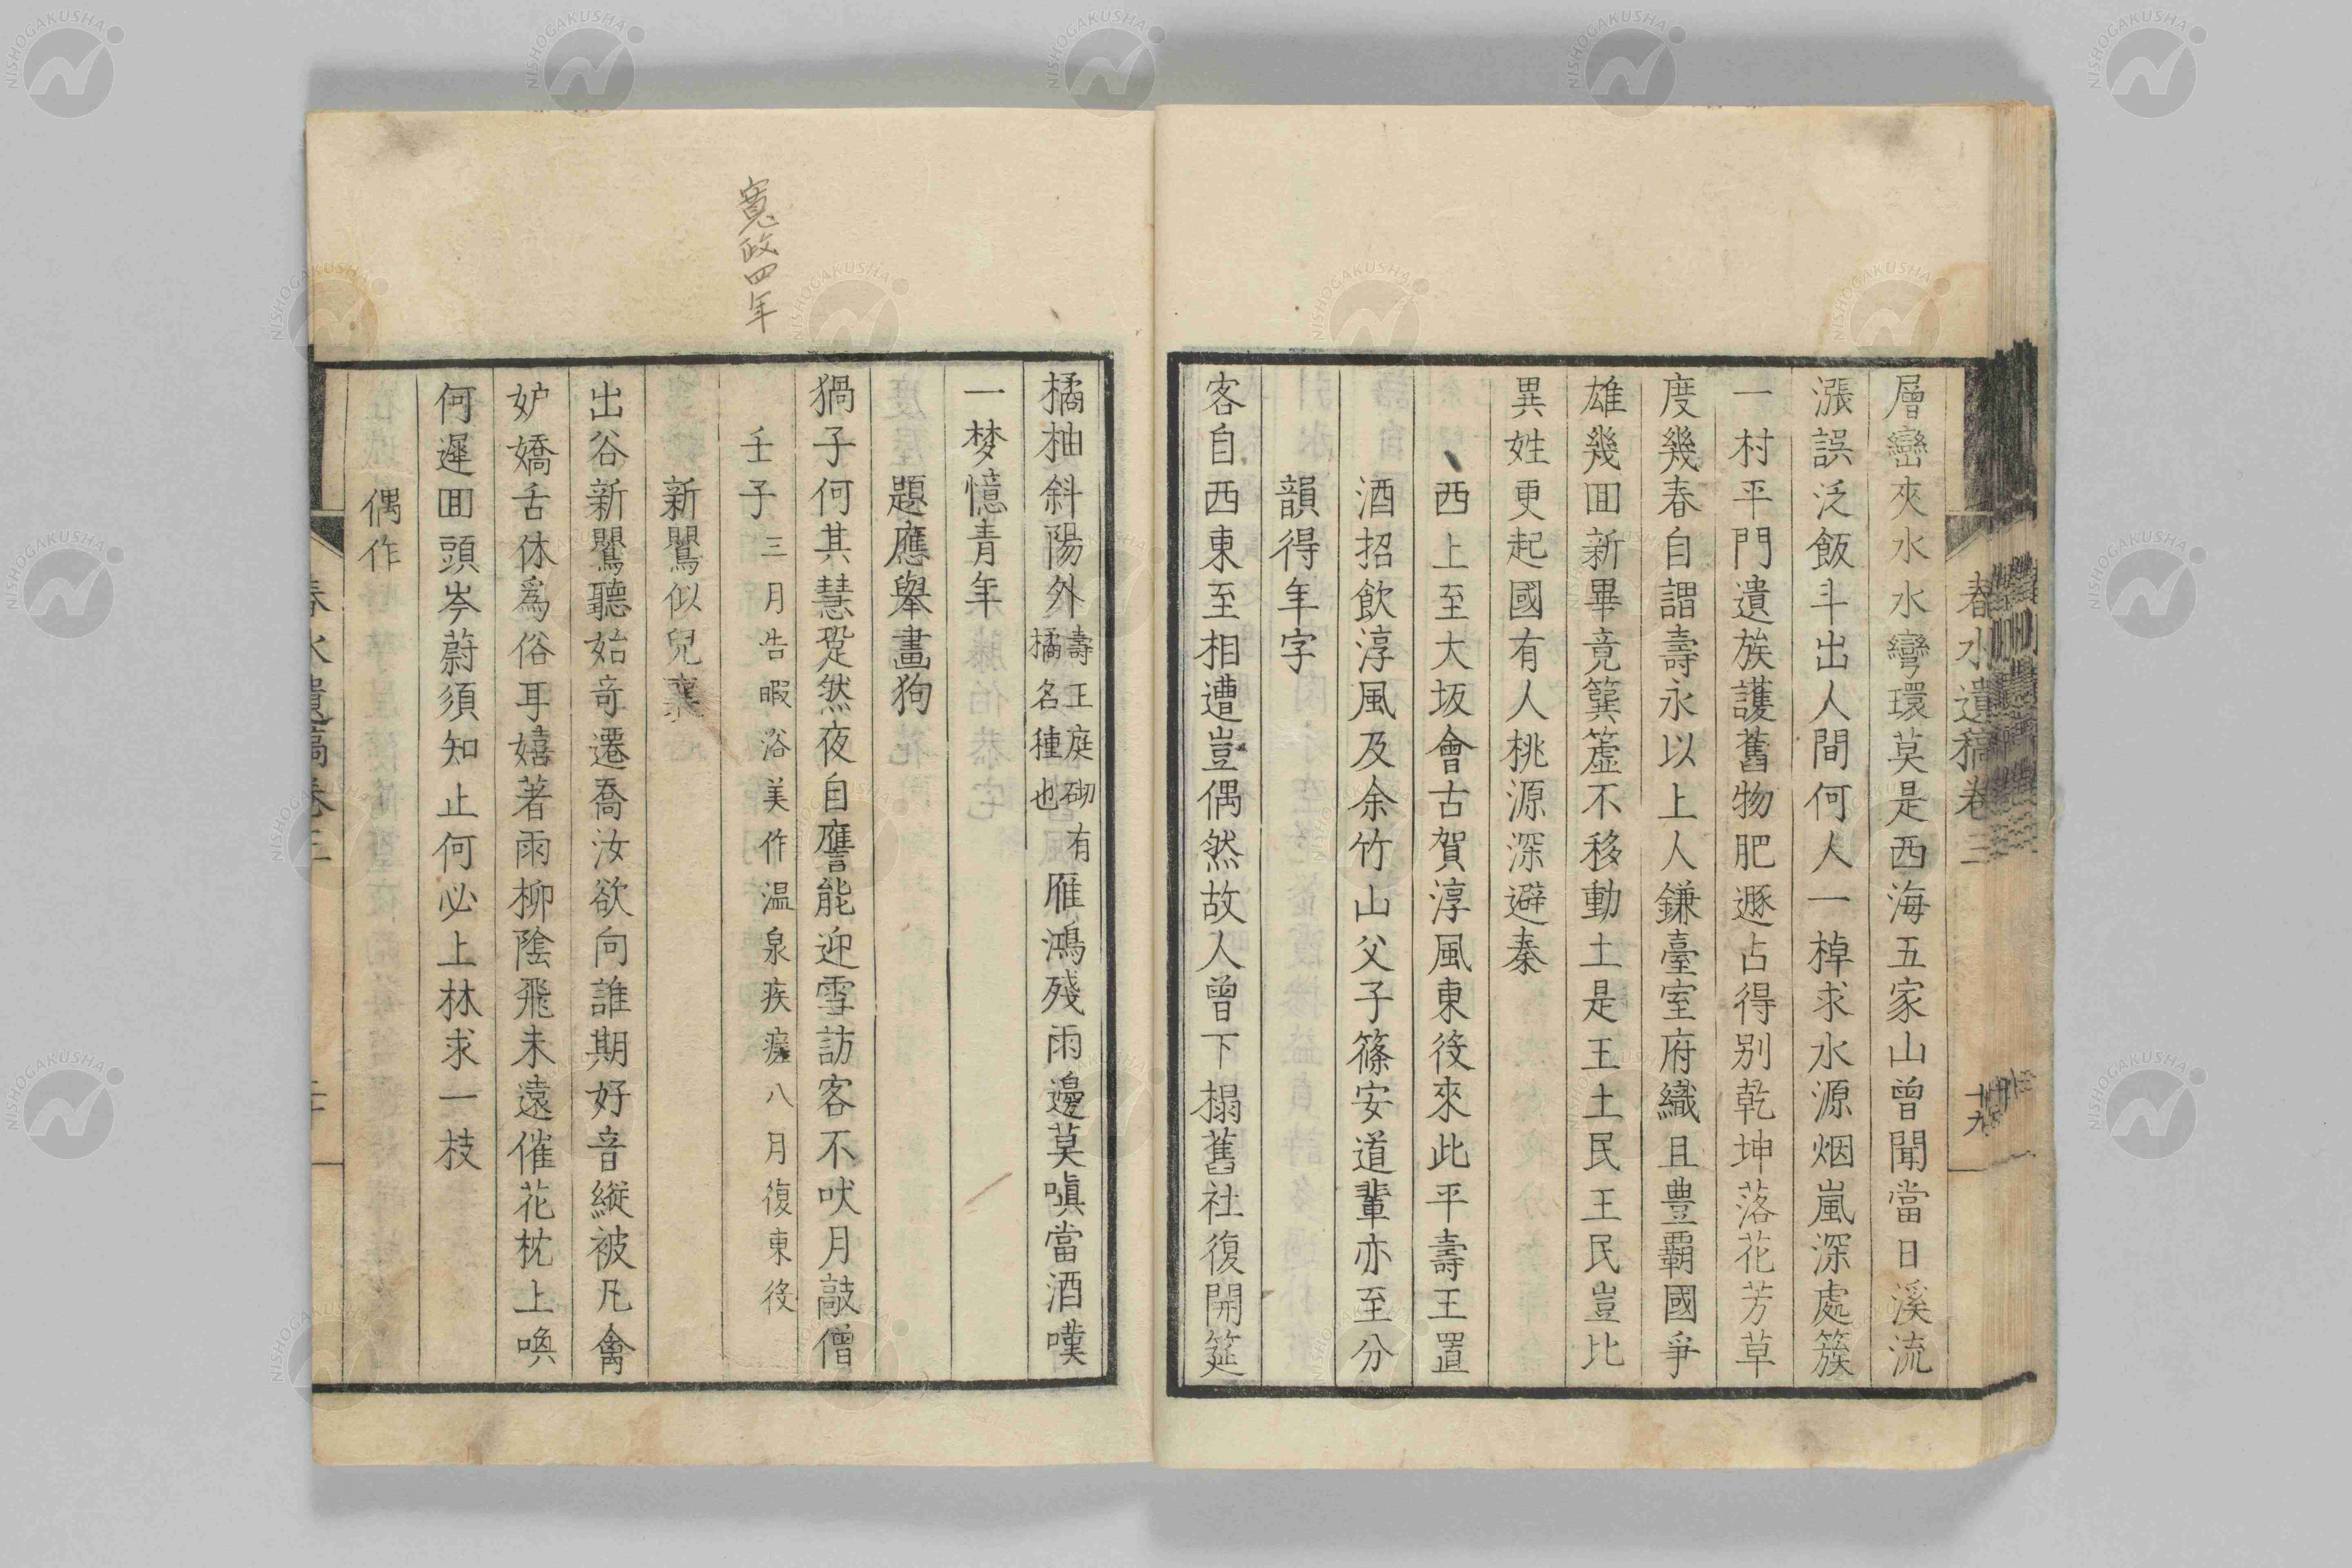 春水遺稿卷三
十九
層巒夾水水彎環莫是西海五家山曾聞當日溪流
漲誤泛飯斗出人間何人一棹求水源烟嵐深處簇
一村平門遺族護舊物肥遯占得別乾坤落花芳草
度幾春自謂壽永以上人鎌臺室府織且豊覇國爭
雄幾囬新畢竟簨簴不移動土是王土民王民豈比
異姓更起國有人桃源深避秦
西上至大坂會古賀淳風東役來此平壽王置
酒招飲淳風及余竹山父子篠安道輩亦至分
韻得年字
客自西東至相遭豈偶然故人曾下榻舊社復開筵
橘柚斜陽外壽王庭砌有橘名種也雁鴻殘雨邊莫嗔當酒嘆
一梦憶青年
題應舉畫狗
猧子何其慧跫然夜自譍能迎雪訪客不吠月敲僧
寬政四年
壬子三月告暇浴美作温泉疾瘥八月復東役
新鶯似兒襄
出谷新鶯聽始奇遷喬汝欲向誰期好音縦被凡禽
妒嬌舌休爲俗耳嬉著雨柳陰飛未遠催花枕上喚
何遲囬頭岑蔚須知止何必上林求一枝
偶作
春水遺稿卷三